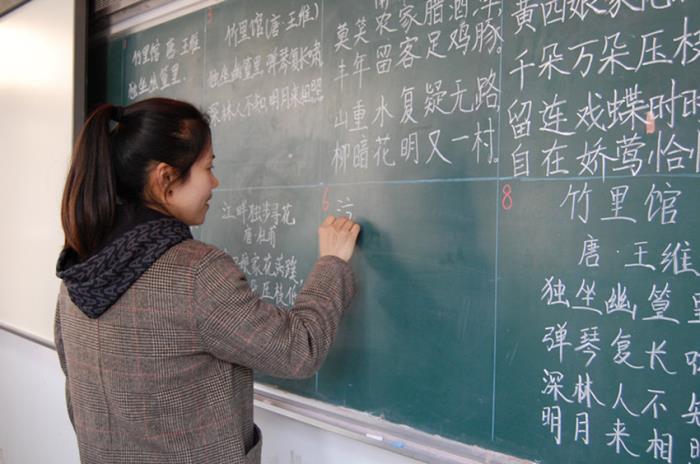 竹里馆 唐·王维
独坐幽篁里
竹里馆(唐·王维)
独坐幽篁里弹琴复长啸
深林人不知明月来相照
莫笑农家腊酒浑
丰年留客足鸡豚。
山重水复疑无路
柳暗花明又一村。
黄四娘家
千朵万朵压枝
留连戏蝶时时
自在娇莺恰恰
江畔独步寻花
唐·杜甫
娘家花满蹊
朵压枝低
6
8
竹里馆
唐·王维
独坐幽篁里
弹琴复长啸
深林人不知
明月来相